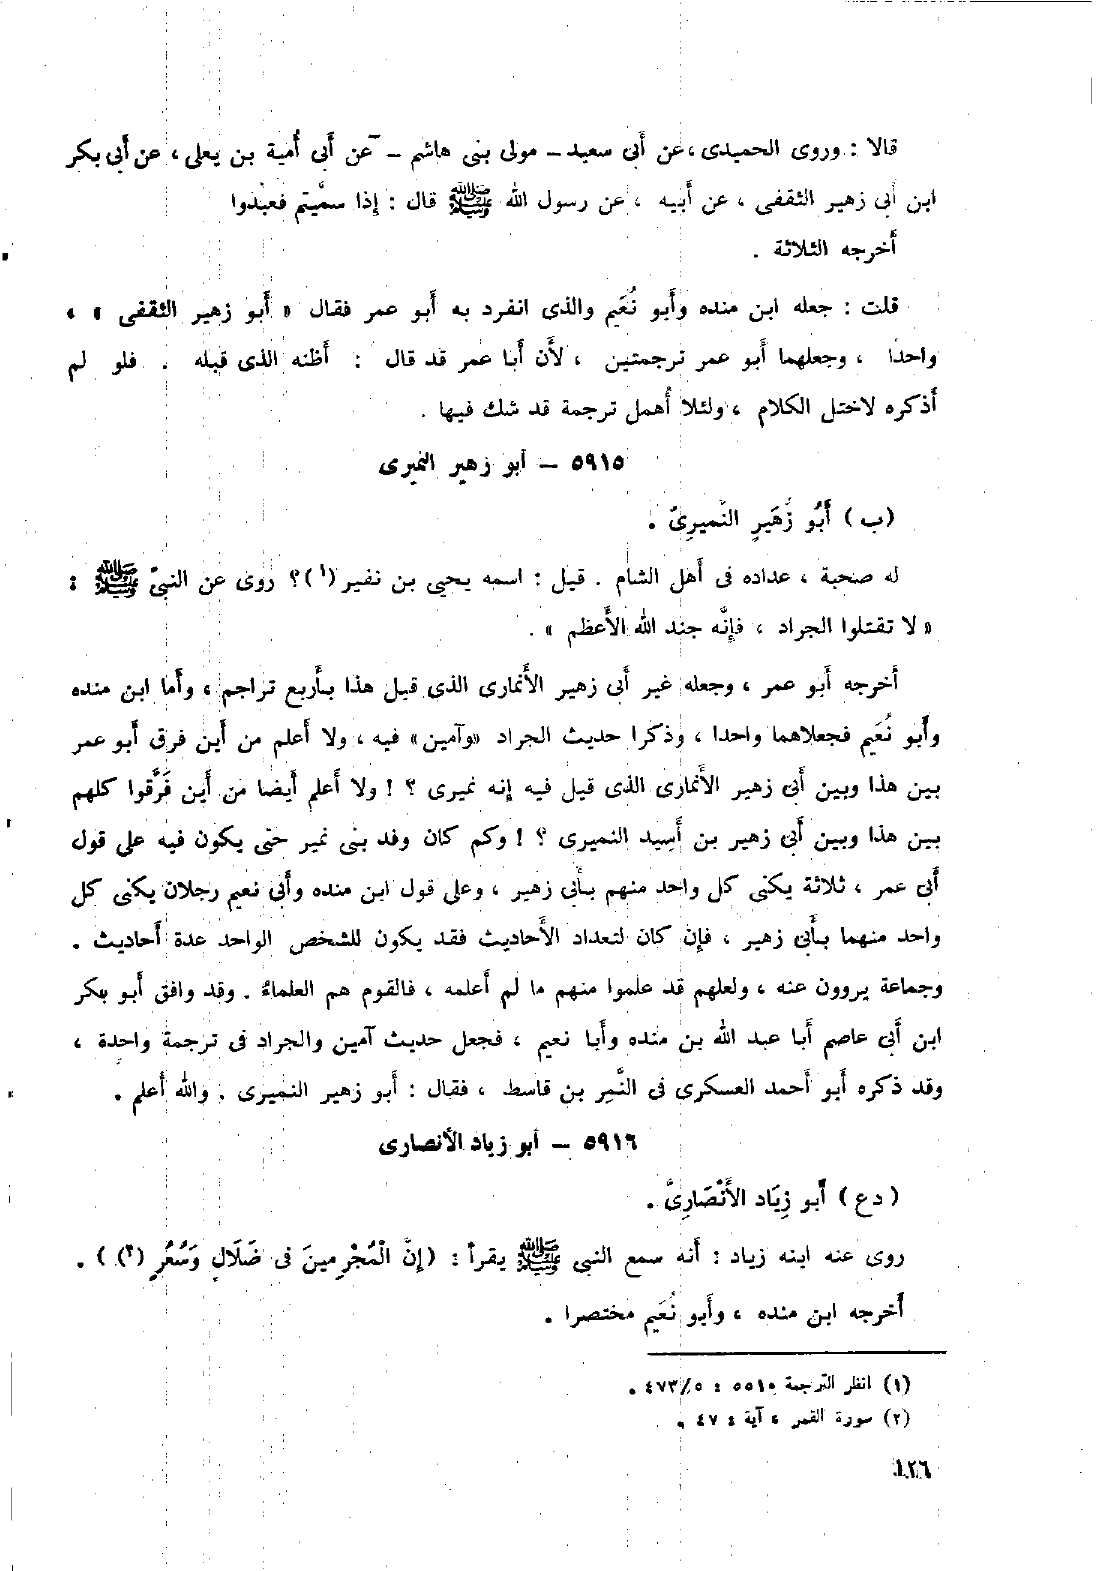 قالا : وروى الحميدى، عن أبى سعيد – مولى بنى هاشم – عن أبى أمية بن يعلى ، عن أبى بكر
ابن أبى زهير الثقفى ، عن أبيه ، عن رسول الله ﷺ قال : إذا سمَّيتم فعبِّدوا
أخرجه الثلاثة .
قلت : جعله ابن منده وأبو نُعَيم والذى انفرد به أبو عمر فقال « أبو زهير الثقفى » ،
واحدًا ، وجعلهما أبو عمر ترجمتين ، لأن أبا عمر قد قال : أظنه الذى قبله . فلو لم
أذكره لاختل الكلام ، ولئلا أُهمل ترجمة قد شك فيها .
٥٩١٥ – أبو زهير النميرى
(ب) أَبُو زُهَيرٍ النُّميرِىُّ .
له صحبة ، عداده فى أهل الشام . قيل : اسمه يحيى بن نفير (١)؟ روى عن النبىِّ ﷺ :
« لا تقتلوا الجراد ، فإنَّه جند الله الأعظم » .
أخرجه أبو عمر ، وجعله غير أبى زهير الأَنمارى الذى قبل هذا بأربع تراجم ، وأما ابن منده
وأبو نُعَيم فجعلاهما واحدا ، وذكرا حديث الجراد «وآمين» فيه ، ولا أعلم من أين فرق أبو عمر
بين هذا وبين أبى زهير الأَنمارى الذى قيل فيه إنه نميرى ؟ ! ولا أعلم أيضا من أين فَرَّقوا كلهم
بين هذا وبين أبى زهير بن أَسِيد النميرى ؟ ! وكم كان وفد بنى نمير حتى يكون فيه على قول
أبى عمر ، ثلاثة يكنى كل واحد منهم بأبى زهير ، وعلى قول ابن منده وأبى نعيم رجلان يكنى كل
واحد منهما بأبى زهير ، فإن كان لتعداد الأحاديث فقد يكون للشخص الواحد عدة أحاديث .
وجماعة يروون عنه ، ولعلهم قد علموا منهم ما لم أعلمه ، فالقوم هم العلماءُ . وقد وافق أبو بكر
ابن أبى عاصم أبا عبد الله بن منده وأبا نعيم ، فجعل حديث آمين والجراد فى ترجمة واحدة ،
وقد ذكره أبو أحمد العسكرى فى النَّمِر بن قاسط ، فقال : أبو زهير النميرى . والله أعلم .
٥٩١٦ – أبو زياد الأنصارى
(دع) أَبو زِيَاد الأَنْصَارِىُّ .
روى عنه ابنه زياد : أنه سمع النبى ﷺ يقرأ : (إِنَّ الْمُجْرِمِينَ فى ضَلَالٍ وَسُعُرٍ (٢) ) .
أخرجه ابن منده ، وأبو نُعَيم مختصرا .
(١) انظر الترجمة ٥٥١٠ : ٤٧٣/٥ .
(٢) سورة القمر ، آية : ٤٧ .
١٢٦